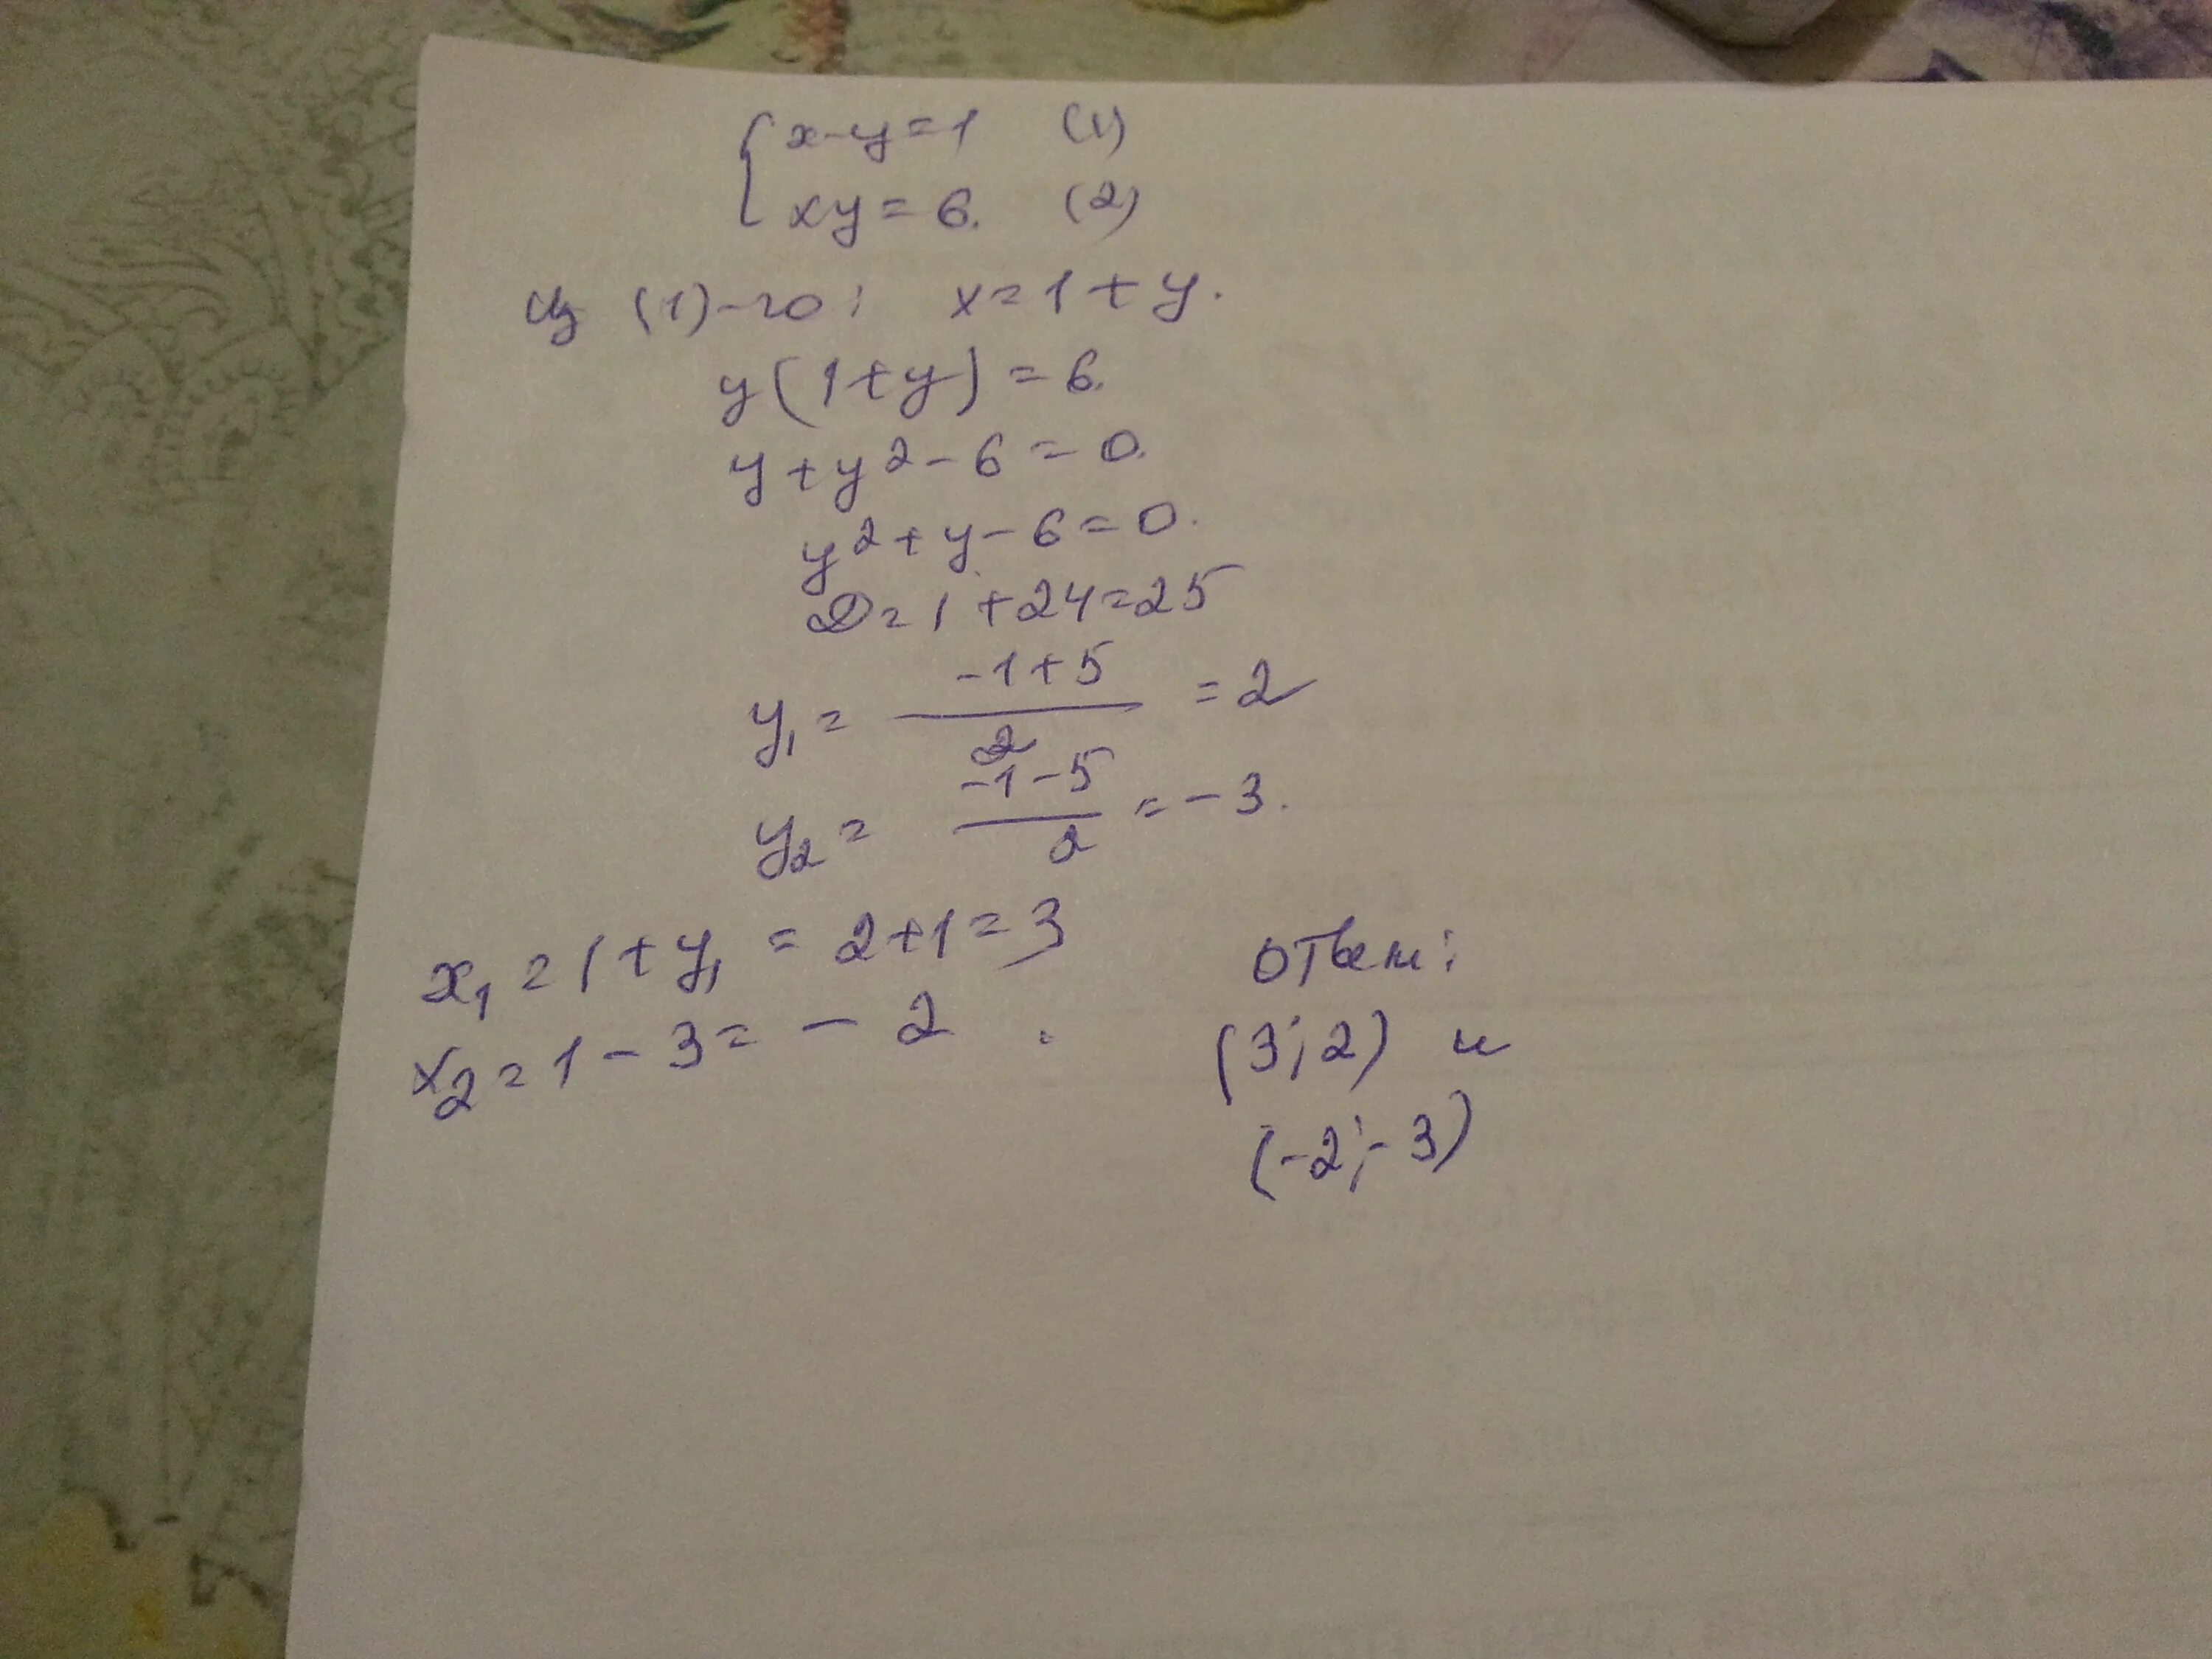 { x-y=1 (1)
xy=6. (2)
Из (1)-го: x=1+y.
y(1+y)=6.
y+y²-6=0.
y²+y-6=0.
D=1+24=25
y₁= (-1+5)/2 =2
y₂= (-1-5)/2 =-3.
x₁=1+y₁=2+1=3
x₂=1-3=-2.
Ответ:
(3;2) и
(-2;-3)